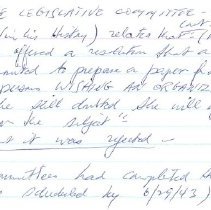 E LEGISLATIVE COMMITTEE -
in his History) relates that - (
offered a resolution that a
nted to prepare a paper for
PURSUNS WISHING AN ORGANIZ
he still doubted she will
on the subject"
t it was rejected -
mmittees had completed th
s scheduled by 6/29/43)